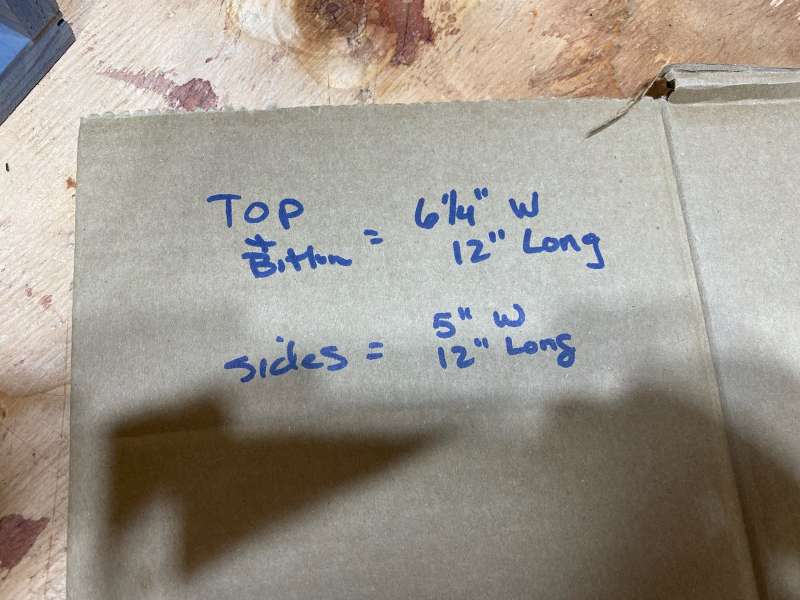 TOP
+
Bottom = 6 1/4" W
12" Long
sides = 5" W
12" Long